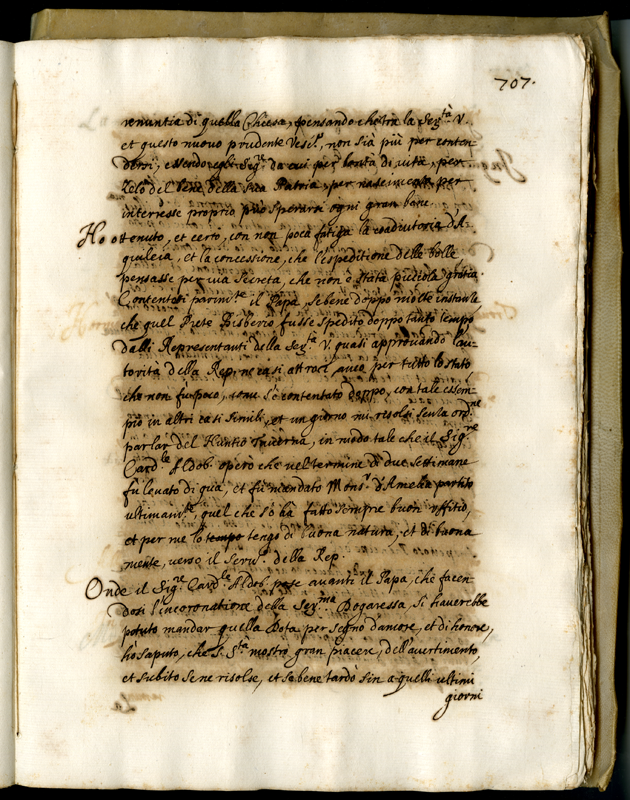 707.
renuntia di quella Chiesa, pensando che tra la Ser.tà V.
et questo nuovo prudente Vesc.º, non sia più per conten
dersi, essendo egli Sig.r da cui per bontà di vita, per
Zelo del bene della sua Patria, per nascimento, per
interesse proprio può sperarsi ogni gran bene.
Ho ottenuto, et certo, con non poca fatiga la coadiutoria d'A-
quileia, et la concessione, che l'espeditione delle bolle
pensasse per via secreta, che non è stata piccola gratia.
Contentosi parim.te il Papa, sebene doppo molte instantie
che quel Prete fusse spedito doppo tanto tempo
dalli Representanti della Ser.tà V. quasi approvando l'au-
torità della Rep. ne casi atroci, anco per tutto lo stato
che non fu poco, come s'è contentato doppo, con tale essem-
pio in altri casi simili, et un giorno mi risolsi senza ord.ne
parlar del Nuntio, in modo tale che il Sig.re
Card.le Aldob. operò che nel termine di due settimane
fu levato di qua, et fu mandato Mons.r d'Amelia partito
ultimam.te, quel che s'è ha fatto sempre buon uffitio,
et per me lo tengo di buona natura, et di buona
mente, verso il serv.º della Rep.
Onde il Sig.re Card.le Aldob. pose avanti il Papa, che facen
dosi l'incoronatione della Ser.ma Dogaressa, si haverebbe
potuto mandar quella Rosa per segno d'amore, et di honore,
hò saputo, che S. S.tà mostrò gran piacere, dell'avertimento,
et subito se ne risolse, et sebene tardò sin a quelli ultimi
giorni